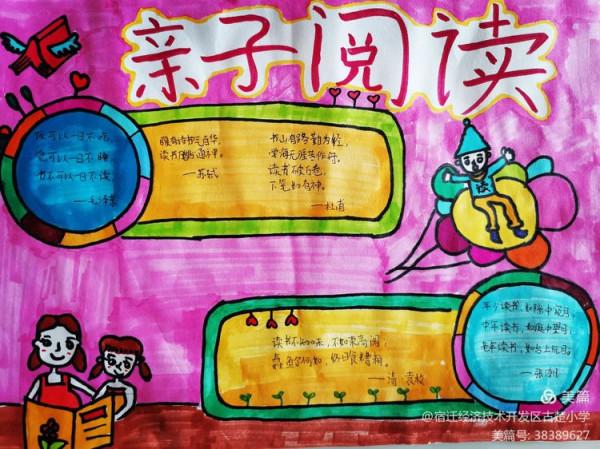 亲子阅读
饭可以一日不吃,
觉可以一日不睡,
书不可以一日不读,
——毛泽东
腹有诗书气自华,
读书万卷始通神。
——苏轼
书山有路勤为径,
学海无崖苦作舟。
读书破万卷,
下笔如有神。
——杜甫
读
年少读书,如隙中
中年读书,如庭中望月,
老年读书,如台上玩月。
——张潮
读书不知味,不如束高阁;
鱼尔何如,终日食糟粕。
——清·袁枚
美篇
@宿迁经济技术开发区古楚小学
美篇号: 38389627